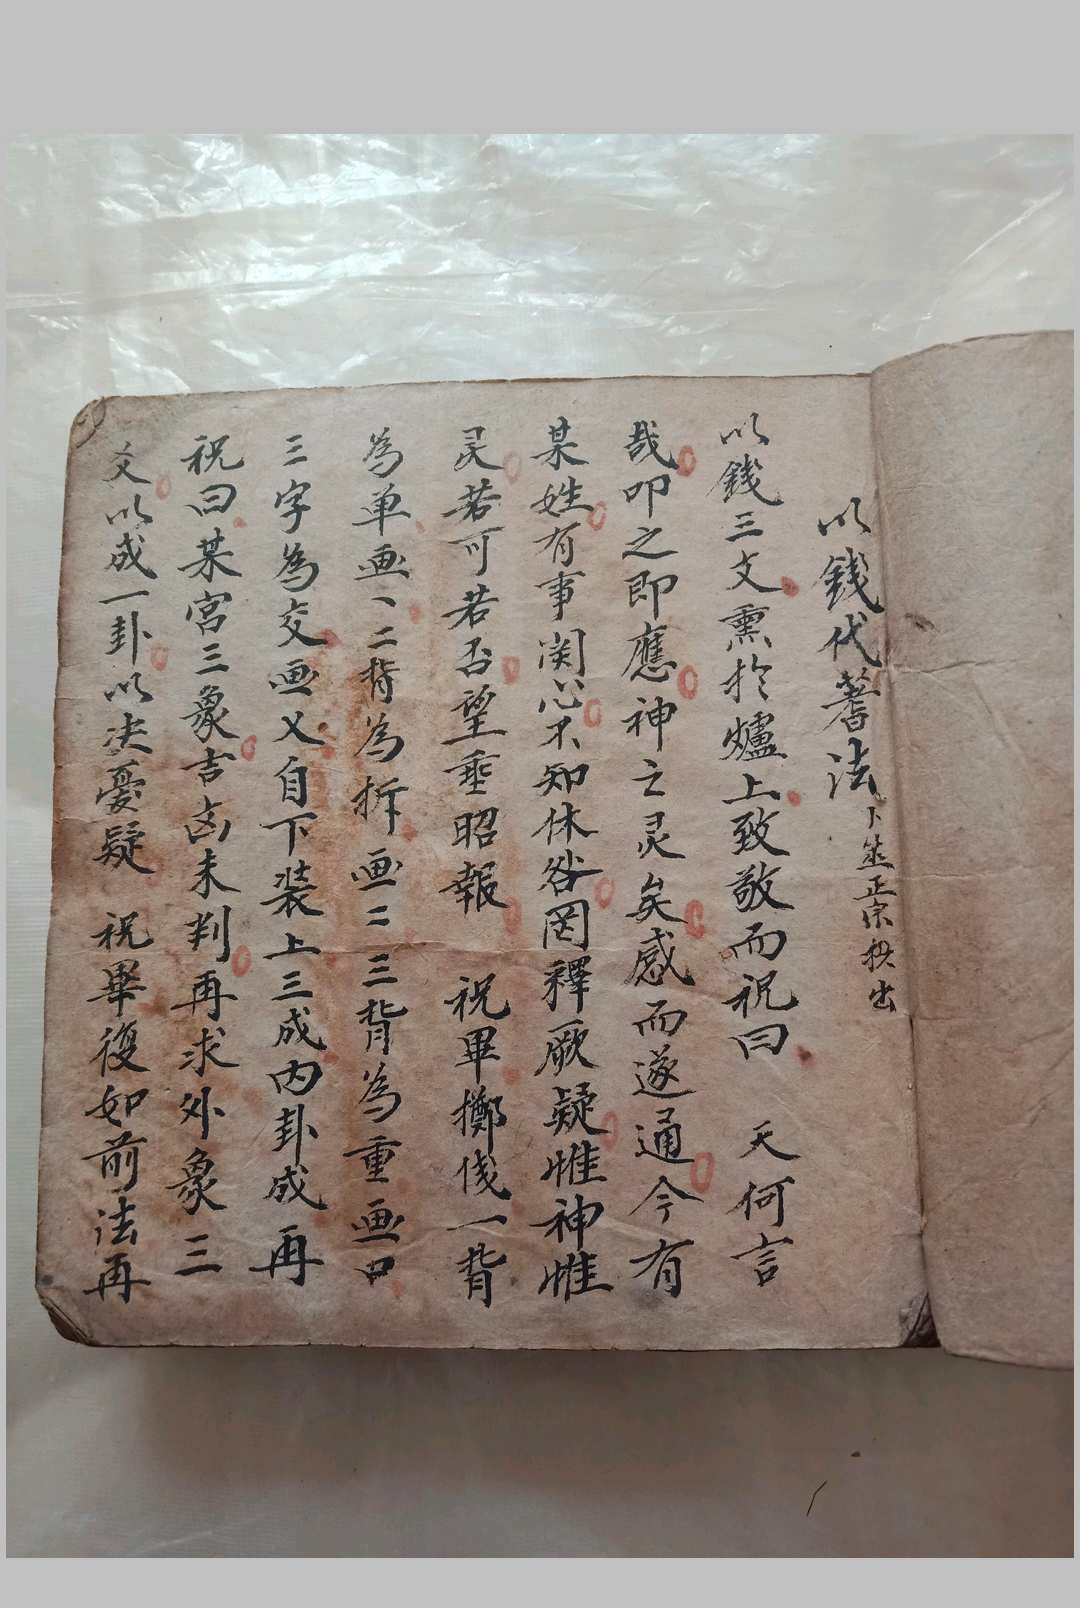 以錢代蓍法 卜筮正宗摸出
以錢三文熏扵爐上致敬而祝曰 天何言
哉叩之即應神之灵矣感而遂通今有
某姓有事関心不知休咎罔釋厥疑惟神惟
灵若可若否望垂昭報 祝畢擲伐一背
為单画丶二背為拆画〓三背為重画口
三字為交画乂自下装上三成内卦成再
祝曰某宮三象吉凶未判再求外象三
爻以成一卦以决憂疑 祝畢復如前法再